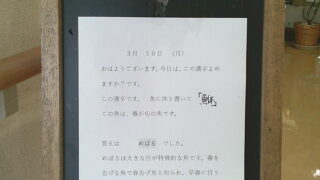 3月 30日 (月)
おはようございます。今日は、この漢字よめ
ますか?です。
この漢字です。 魚に休と書いて「鮴」
この魚は、春が旬の魚です。
答えは めばる でした。
めばるは大きな目が特徴的な魚です。春を
告げる魚で春告げ魚と知られ、早春に行う